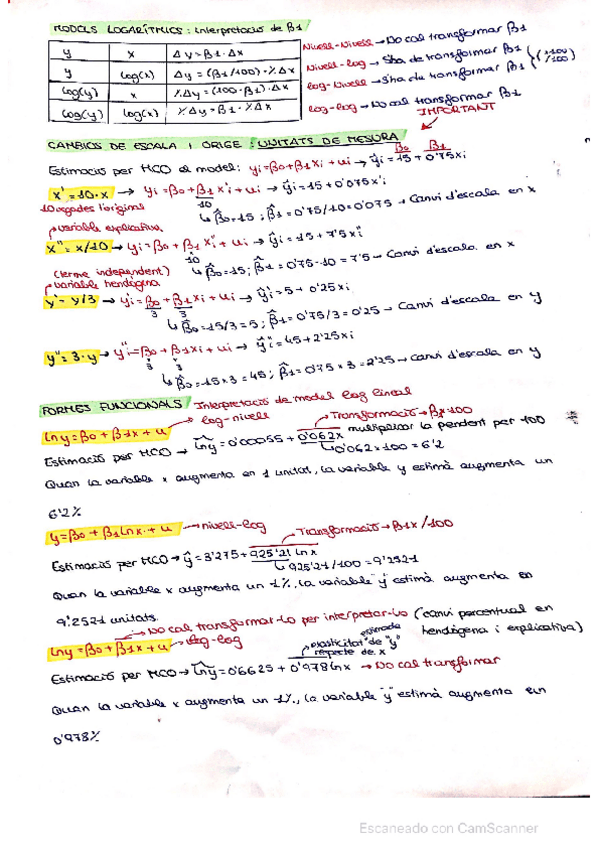 MODELS LOGARÍTMICS: interpretació de β1
y x Δy=β1·Δx
y log(x) Δy=(β1/100)·%Δx
log(y) x %Δy=(100·β1)·Δx
log(y) log(x) %Δy=β1·%Δx
Nivell-Nivell → No cal transformar β1
Nivell-log → S'ha de transformar β1
log-Nivell → S'ha de transformar β1
log-log → No cal transformar β1
IMPORTANT
CAMBIOS DE ESCALA I ORIGE: UNITATS DE MESURA
Estimació per MCO al model: yi=β0+β1xi+ui → ŷi=15+0'75xi
β0 β1
x'=10·x → yi=β0+β1x'i+ui → ŷi=15+0'075x'i
10
10 vegades l'original
↳ β̂0=15; β̂1=0'75/10=0'075 → Canvi d'escala en x
variable explicativa
x''=x/10 → yi=β0+β1x''i+ui → ŷi=15+7'5x''i
10
(terme independent)
↳ β̂0=15; β̂1=0'75·10=7'5 → Canvi d'escala en x
variable hendògena
y'=y/3 → y'i=β0+β1xi+ui → ŷ'i=5+0'25xi
3 3
↳ β̂0=15/3=5; β̂1=0'75/3=0'25 → Canvi d'escala en y
y''=3·y → y''i=β0+β1xi+ui → ŷ''i=45+2'25xi
3 3
↳ β̂0=15×3=45; β̂1=0'75×3=2'25 → Canvi d'escala en y
FORMES FUNCIONALS Interpretació de model log lineal
lny=β0+β1x+u → log-nivell
Transformació → β1x100
Estimació per MCO → lny=0'00055+0'062x multiplicar la pendent per 100
↳ 0'062×100=6'2
Quan la variable x augmenta en 1 unitat, la variable y estimà augmenta un
6'2%
y=β0+β1lnx+u → nivell-log
Transformació → β1x/100
Estimació per MCO → ŷ=3'275+925'21 lnx
↳ 925'21/100=9'2521
Quan la variable x augmenta un 1%, la variable "y" estimà augmenta en
9'2521 unitats.
No cal transformar-lo per interpretar-lo (canvi percentual en
hendògena i explicativa)
lny=β0+β1x+u → log-log
elasticitat de "y" estimada
respecte de x
Estimació per MCO → lny=0'6625+0'978lnx → No cal transformar
Quan la variable x augmenta un 1%, la variable "y" estimà augmenta en
0'978%
Escaneado con CamScanner